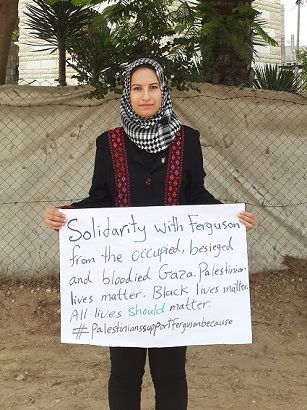 Solidarity with Ferguson
from the occupied, besieged
and bloodied Gaza. Palestinian
lives matter. Black lives matter.
All lives should matter.
#Palestinianssupportfergusonbecause